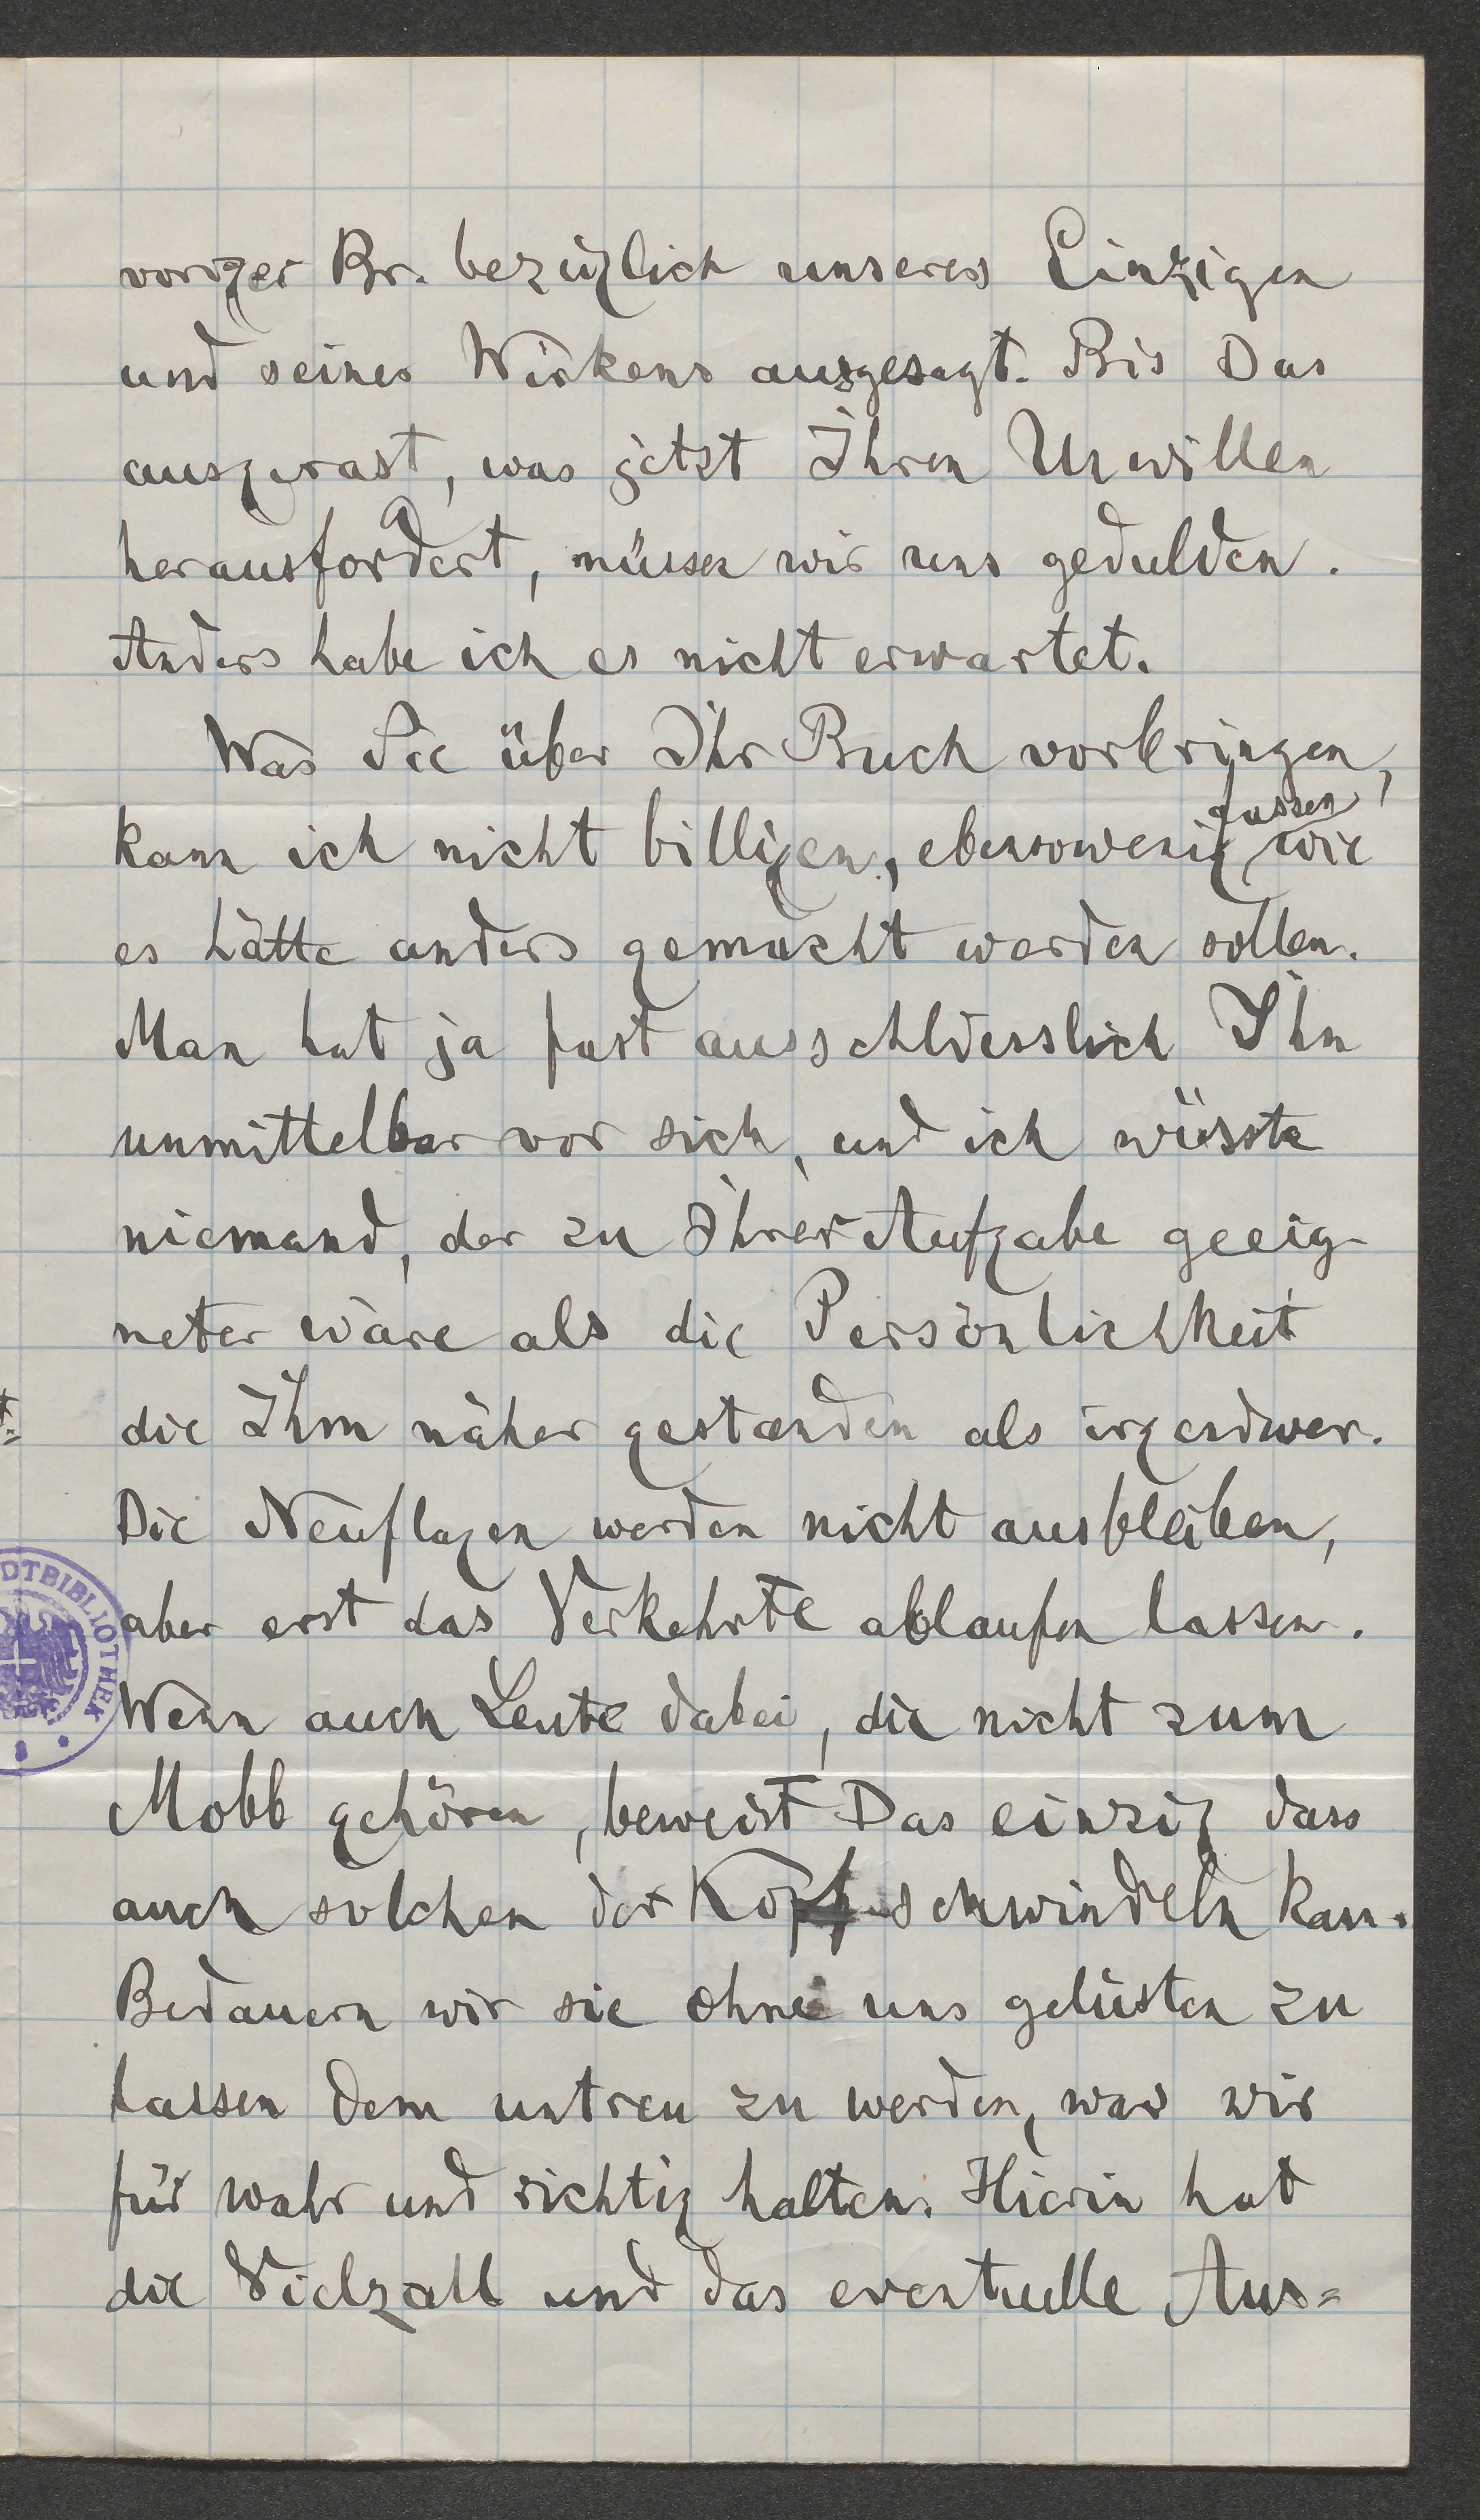 voriger Br. bezüglich unseres Einzigen
und seines Wirkens ausgesagt. Bis Das
ausgerast, was jetzt Ihren Unwillen
herausfordert, müssen wir uns gedulden.
Anders habe ich es nicht erwartet.
Was Sie über Ihr Buch vorbringen,
fassen
kann ich nicht billigen, ebensowenig wie
es hätte anders gemacht werden sollen.
Man hat ja fast ausschliesslich Ihn
unmittelbar vor sich, und ich wüsste
niemand, der zu Ihrer Aufgabe geeig-
neter wäre als die Persönlichkeit
die Ihm näher gestanden als irgendwer.
Die Neuflagen werden nicht ausbleiben,
aber erst das Verkehrte ablaufen lassen.
Wenn auch Leute dabei, die nicht zum
Mobb gehören, beweist Das einzig dass
auch solchen der Kopf schwindeln kann.
Bedauern wir sie ohne uns gelüsten zu
lassen dem untreu zu werden, was wir
für wahr und richtig halten. Hierin hat
die Vielzahl und das eventuelle Aus=
DTBIBLIOTHEK